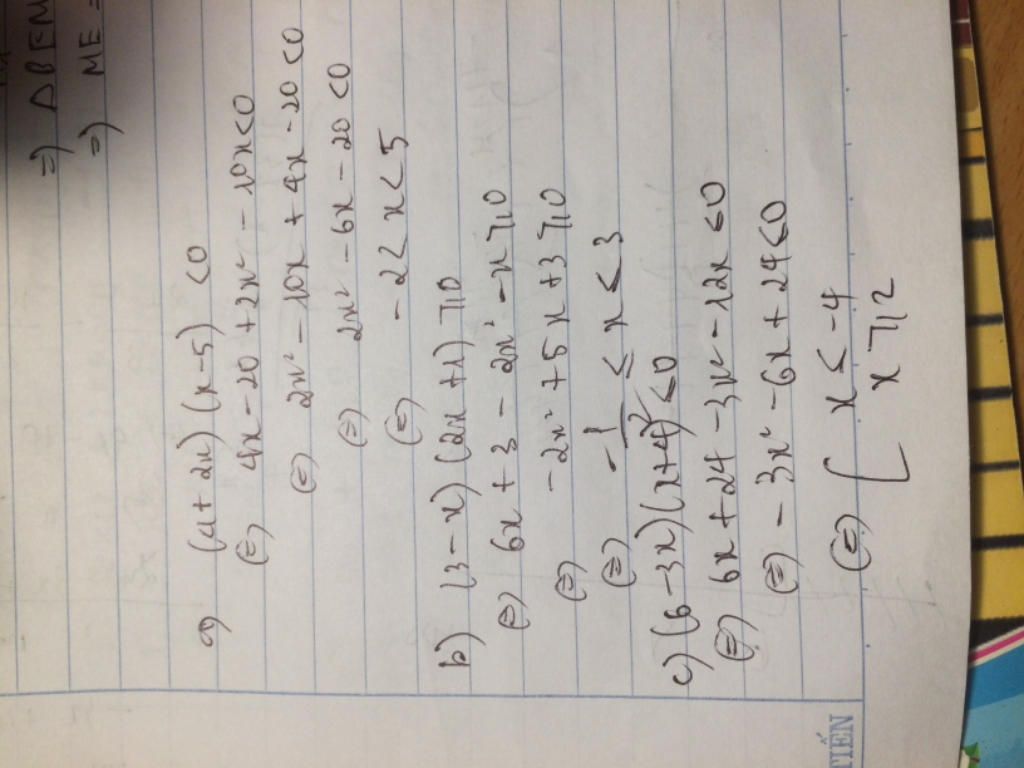 =) Δ BEM
=) ME =
a) (4+2x) (x-5) <0
(=) 4x-20+2x²-10x<0
(=) 2x²-10x+4x-20<0
(=) 2x²-6x-20<0
(=) -2<x<5
b) (3-x)(2x+1)⩾0
(=) 6x+3-2x²-x⩾0
(=) -2x²+5x+3⩾0
(=) -1 ≤ x ≤ 3
c) (6-3x)(x+4)≤0
(=) 6x+24-3x²-12x≤0
(=) -3x²-6x+24≤0
(=) [ x≤-4
x⩾2
TIẾN